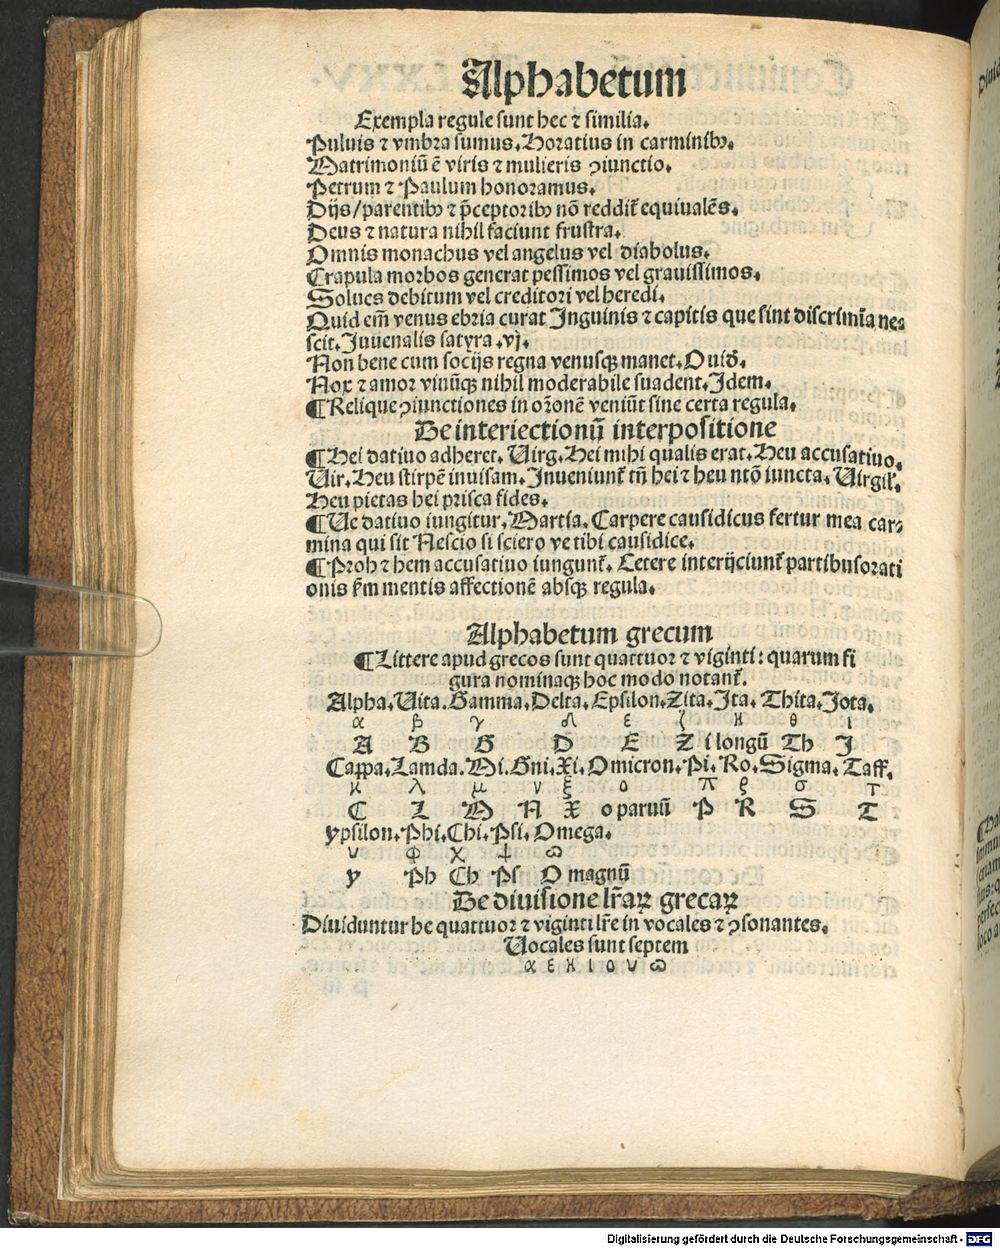 Alphabetum
Exempla regule sunt hec ⁊ similia.
Puluis ⁊ vmbra sumus. Horatius in carminibꝫ.
Matrimoniū ē viris ⁊ mulieris ꝯiunctio.
Petrum ⁊ Paulum honoramus.
Dijs/parentibꝫ ⁊ p̄ceptoribꝫ nō reddit᷑ equiualēs.
Deus ⁊ natura nihil faciunt frustra.
Omnis monachus vel angelus vel diabolus.
Crapula morbos generat pessimos vel grauissimos.
Solues debitum vel creditori vel heredi.
Quid em̄ venus ebria curat Inguinis ⁊ capitis que sint discrimīa nes
scit. Juuenalis satyra .vj.
Non bene cum socijs regna venusqꝫ manet. Ouid̄.
Nox ⁊ amor vinūqꝫ nihil moderabile suadent. Jdem.
¶ Relique ꝯiunctiones in orōnē veniūt sine certa regula.
De interiectionū interpositione
¶ Hei datiuo adheret. Uirg. Hei mihi qualis erat. Heu accusatiuo.
Uir. Heu stirpē inuisam. Jnueniunt᷑ tn̄ hei ⁊ heu ntō iuncta. Uirgil᷑.
Heu pietas hei prisca fides.
¶ Ue datiuo iungitur. Martia. Carpere causidicus fertur mea car⸗
mina qui sit Nescio si sciero ve tibi causidice.
¶ Proh ⁊ hem accusatiuo iungunt᷑. Cetere interijciunt᷑ partibus orati
onis s̄m mentis affectionē absqꝫ regula.
Alphabetum grecum
¶ Littere apud grecos sunt quattuor ⁊ viginti: quarum fi
gura nominaqꝫ hoc modo notant᷑.
Alpha. Uita. Gamma. Delta. Epsilon. Zita. Jta. Thita. Jota.
α β γ δ ε ζ η θ ι
A B G D E Z i longū Th J
Cappa. Lamda. Mi. Gni. Xi. Omicron. Pi. Ro. Sigma. Taff.
κ λ μ ν ξ ο π ρ σ τ
C L M N X o paruū P R S T
ypsilon. Phi. Chi. Psi. Omega.
υ φ χ ψ ω
y Ph Ch Ps O magnū
De diuisione lr̄aꝝ grecaꝝ
Diuiduntur he quattuor ⁊ viginti lr̄e in vocales ⁊ ꝯsonantes.
Uocales sunt septem
α ε η ι ο υ ω
Digitalisierung gefördert durch die Deutsche Forschungsgemeinschaft - DFG